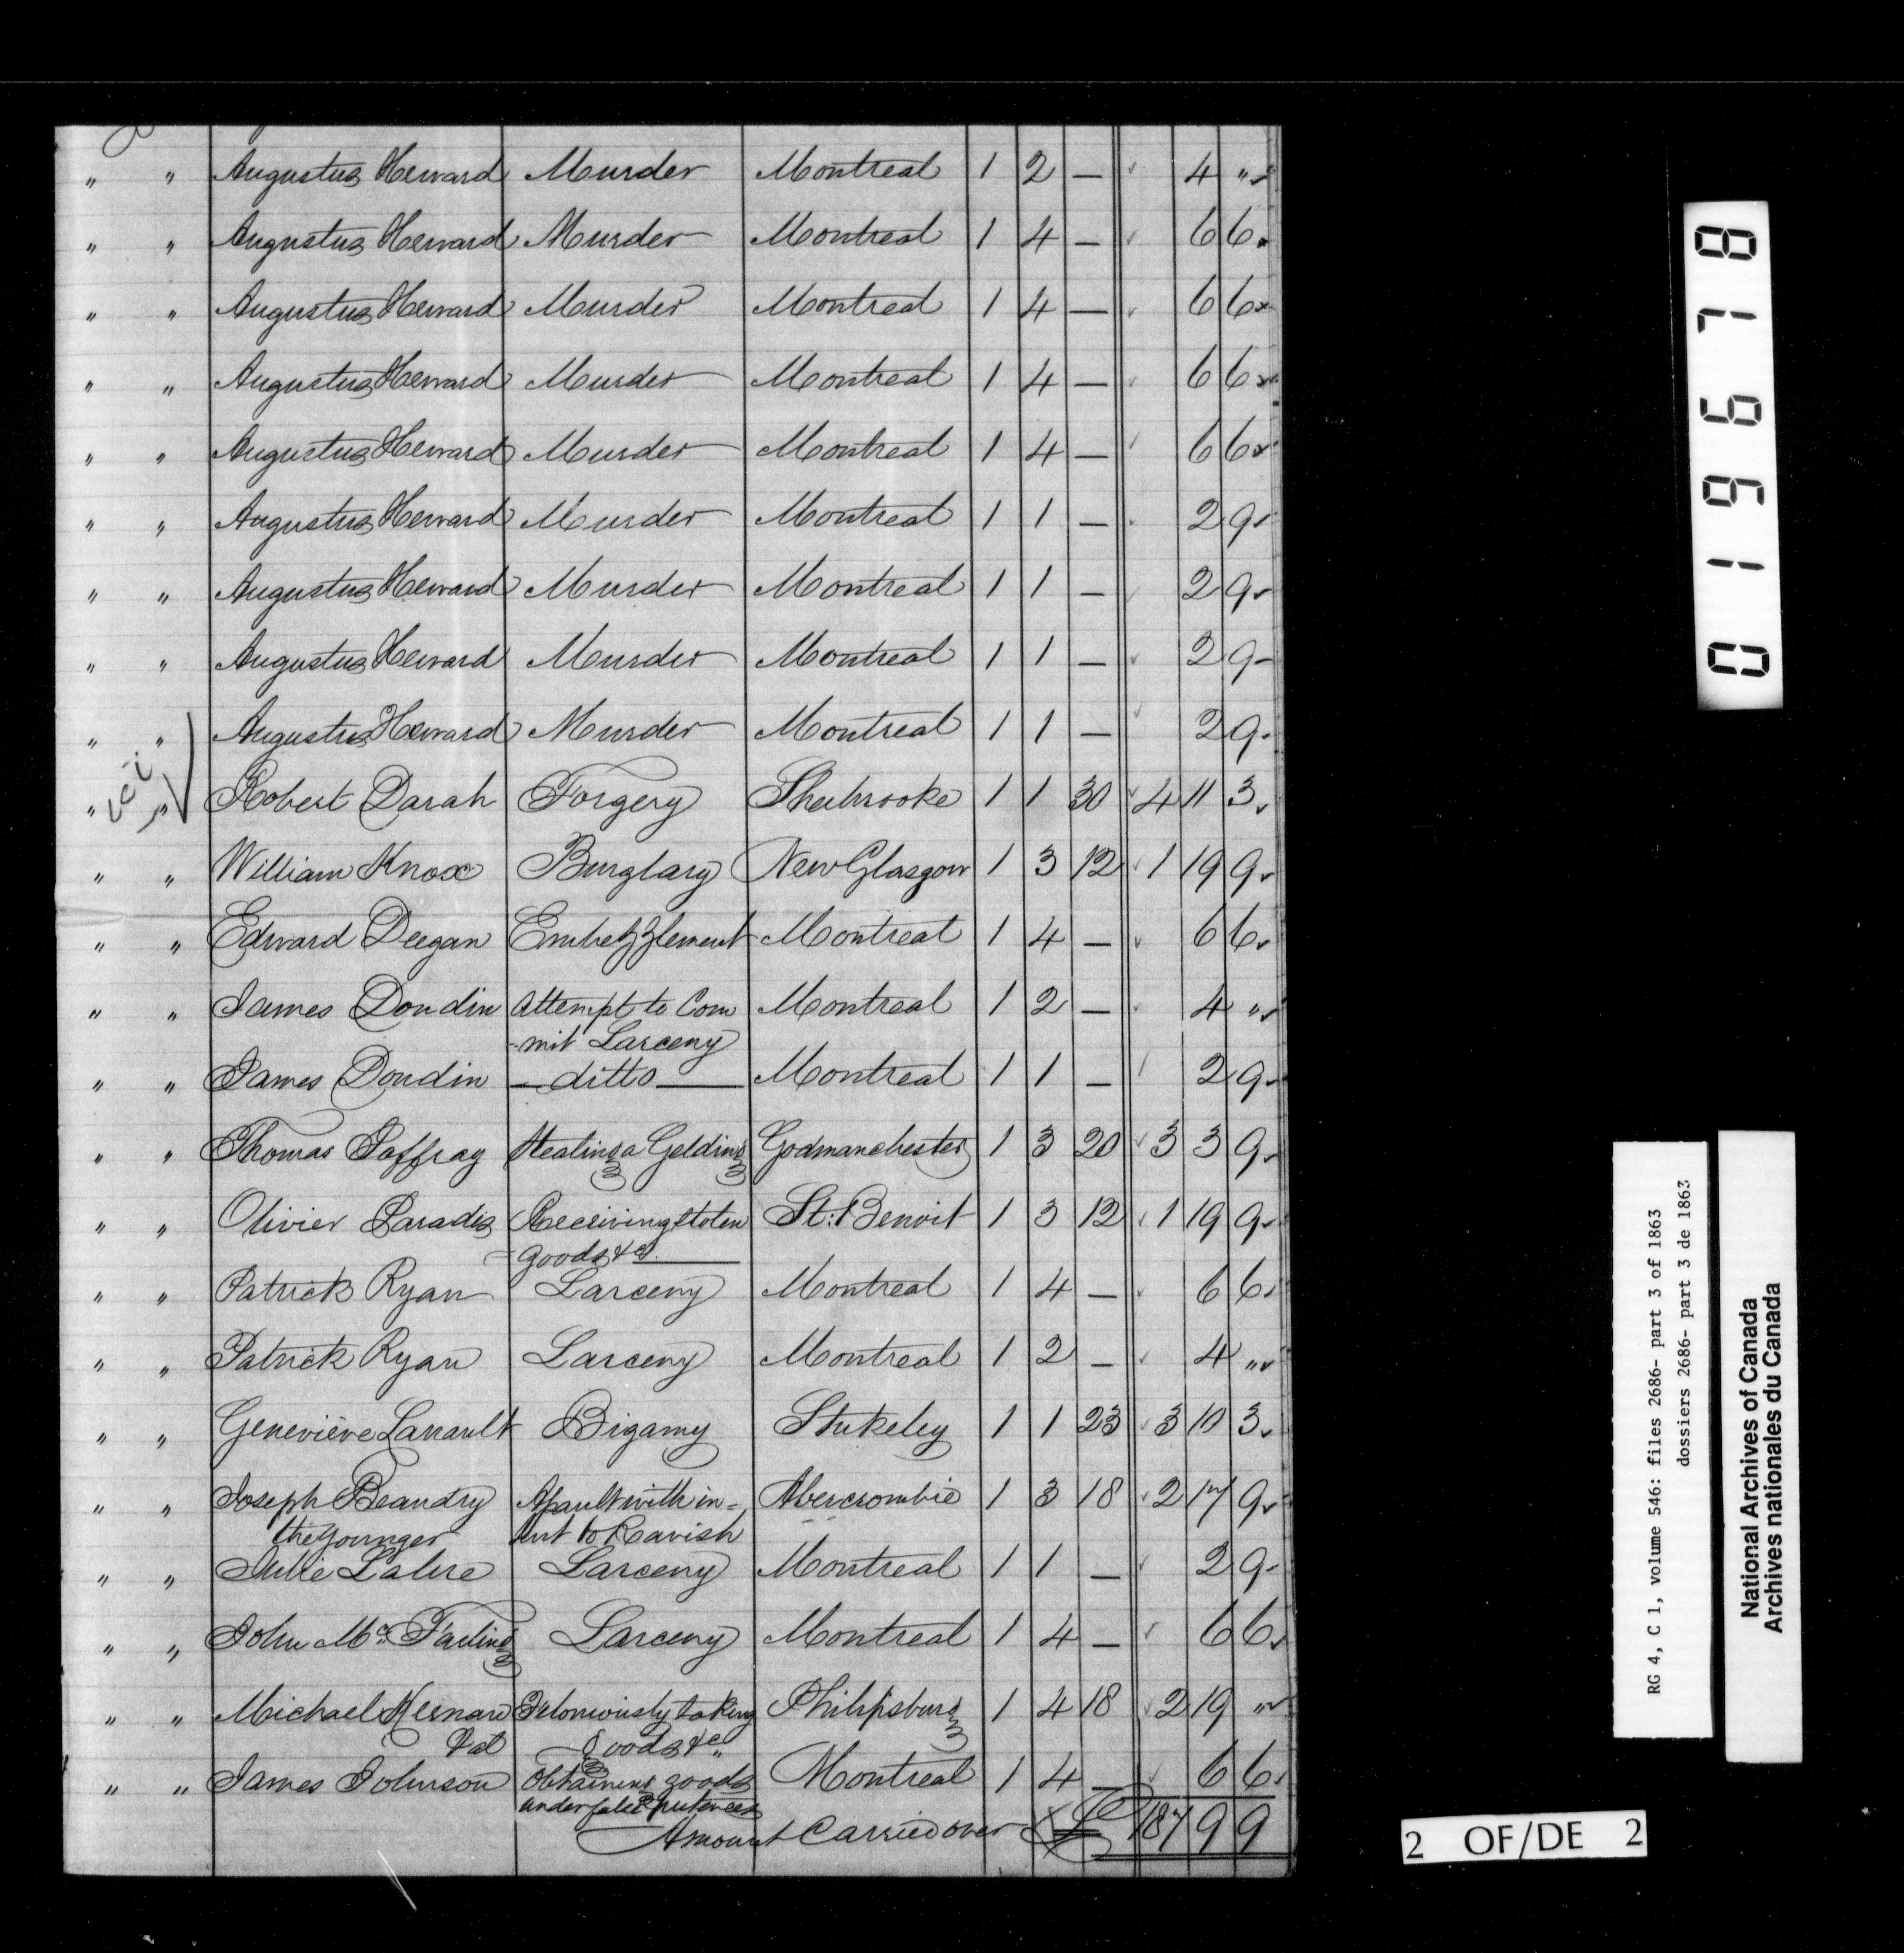 " " Augustus Heward Murder Montreal 1 2 — 4 "
" " Augustus Heward Murder Montreal 1 4 — 6 6
" " Augustus Heward Murder Montreal 1 4 — 6 6
" " Augustus Heward Murder Montreal 1 4 — 6 6
" " Augustus Heward Murder Montreal 1 4 — 6 6
" " Augustus Heward Murder Montreal 1 1 — 2 9
" " Augustus Heward Murder Montreal 1 1 — 2 9
" " Augustus Heward Murder Montreal 1 1 — 2 9
" " Augustus Heward Murder Montreal 1 1 — 2 9
" " Robert Darah Forgery Sherbrooke 1 1 30 4 11 3
" " William Knox Burglary New Glasgow 1 3 12 1 19 9
" " Edward Deegan Embezzlement Montreal 1 4 — 6 6
" " James Doudin Attempt to Com Montreal 1 2 — 4 "
-mit Larceny
" " James Doudin — ditto — Montreal 1 1 — 2 9
" " Thomas Jaffray Stealing a Gelding Godmanchester 1 3 20 3 3 9
" " Olivier Paradis Receiving stolen St: Benoit 1 3 12 1 19 9
goods &c.
" " Patrick Ryan Larceny Montreal 1 4 — 6 6
" " Patrick Ryan Larceny Montreal 1 2 — 4 "
" " Geneviève Larrault Bigamy Stukeley 1 1 23 3 10 3
" " Joseph Beaudry Assault with in= Abercrombie 1 3 18 2 17 9
the Younger tent to Ravish
" " Julie Labre Larceny Montreal 1 1 — 2 9
" " John Mc. Farling Larceny Montreal 1 4 — 6 6
" " Michael Keenan Feloniously taking Philipsburg 1 4 18 2 19 "
Goods &c
" " James Johnson Obtaining goods Montreal 1 4 — 6 6
under false pretences
Amount Carried over £ 187 9 9
019678
RG 4, C 1, volume 546: files 2686- part 3 of 1863
dossiers 2686- part 3 de 1863
National Archives of Canada
Archives nationales du Canada
2 OF/DE 2